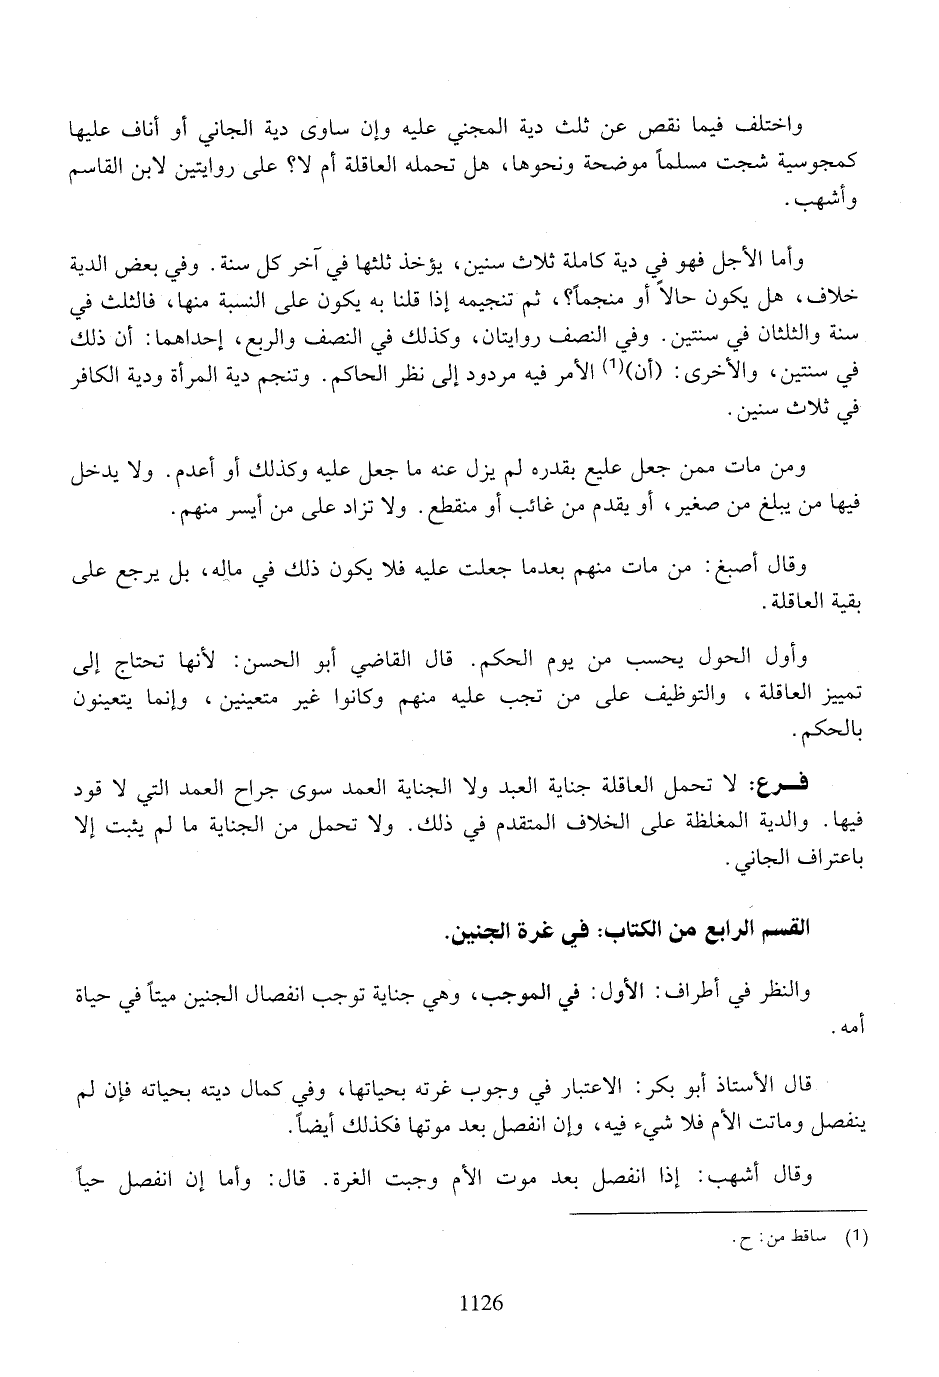 واختلف فيما نقص عن ثلث دية المجني عليه وإن ساوى دية الجاني أو أناف عليها
كمجوسية شجت مسلماً موضحة ونحوها، هل تحمله العاقلة أم لا؟ على روايتين لابن القاسم
وأشهب.
وأما الأجل فهو في دية كاملة ثلاث سنين، يؤخذ ثلثها في آخر كل سنة. وفي بعض الدية
خلاف، هل يكون حالاً أو منجماً؟، ثم تنجيمه إذا قلنا به يكون على النسبة منها، فالثلث في
سنة والثلثان في سنتين. وفي النصف روايتان، وكذلك في النصف والربع، إحداهما: أن ذلك
في سنتين، والأخرى: (أن)(1) الأمر فيه مردود إلى نظر الحاكم. وتنجم دية المرأة ودية الكافر
في ثلاث سنين.
ومن مات ممن جعل عليع بقدره لم يزل عنه ما جعل عليه وكذلك أو أعدم. ولا يدخل
فيها من يبلغ من صغير، أو يقدم من غائب أو منقطع. ولا تزاد على من أيسر منهم.
وقال أصبغ: من مات منهم بعدما جعلت عليه فلا يكون ذلك في ماله، بل يرجع على
بقية العاقلة.
وأول الحول يحسب من يوم الحكم. قال القاضي أبو الحسن: لأنها تحتاج إلى
تمييز العاقلة، والتوظيف على من تجب عليه منهم وكانوا غير متعينين، وإنما يتعينون
بالحكم.
فـرع: لا تحمل العاقلة جناية العبد ولا الجناية العمد سوى جراح العمد التي لا قود
فيها. والدية المغلظة على الخلاف المتقدم في ذلك. ولا تحمل من الجناية ما لم يثبت إلا
باعتراف الجاني.
القسم الرابع من الكتاب: في غرة الجنين.
والنظر في أطراف: الأول: في الموجب، وهي جناية توجب انفصال الجنين ميتاً في حياة
أمه.
قال الأستاذ أبو بكر: الاعتبار في وجوب غرته بحياتها، وفي كمال ديته بحياته فإن لم
ينفصل وماتت الأم فلا شيء فيه، وإن انفصل بعد موتها فكذلك أيضاً.
وقال أشهب: إذا انفصل بعد موت الأم وجبت الغرة. قال: وأما إن انفصل حياً
(1) ساقط من: ح.
1126